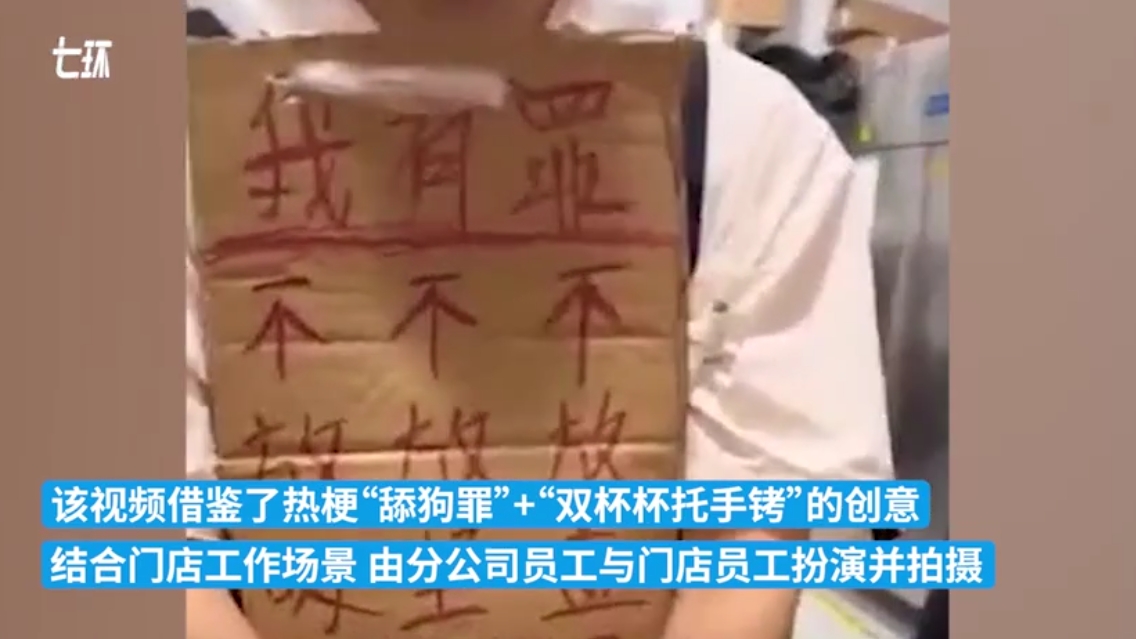 七环
我有罪
不不不
放放
该视频借鉴了热梗“舔狗罪”+“双杯杯托手铐”的创意
结合门店工作场景 由分公司员工与门店员工扮演并拍摄